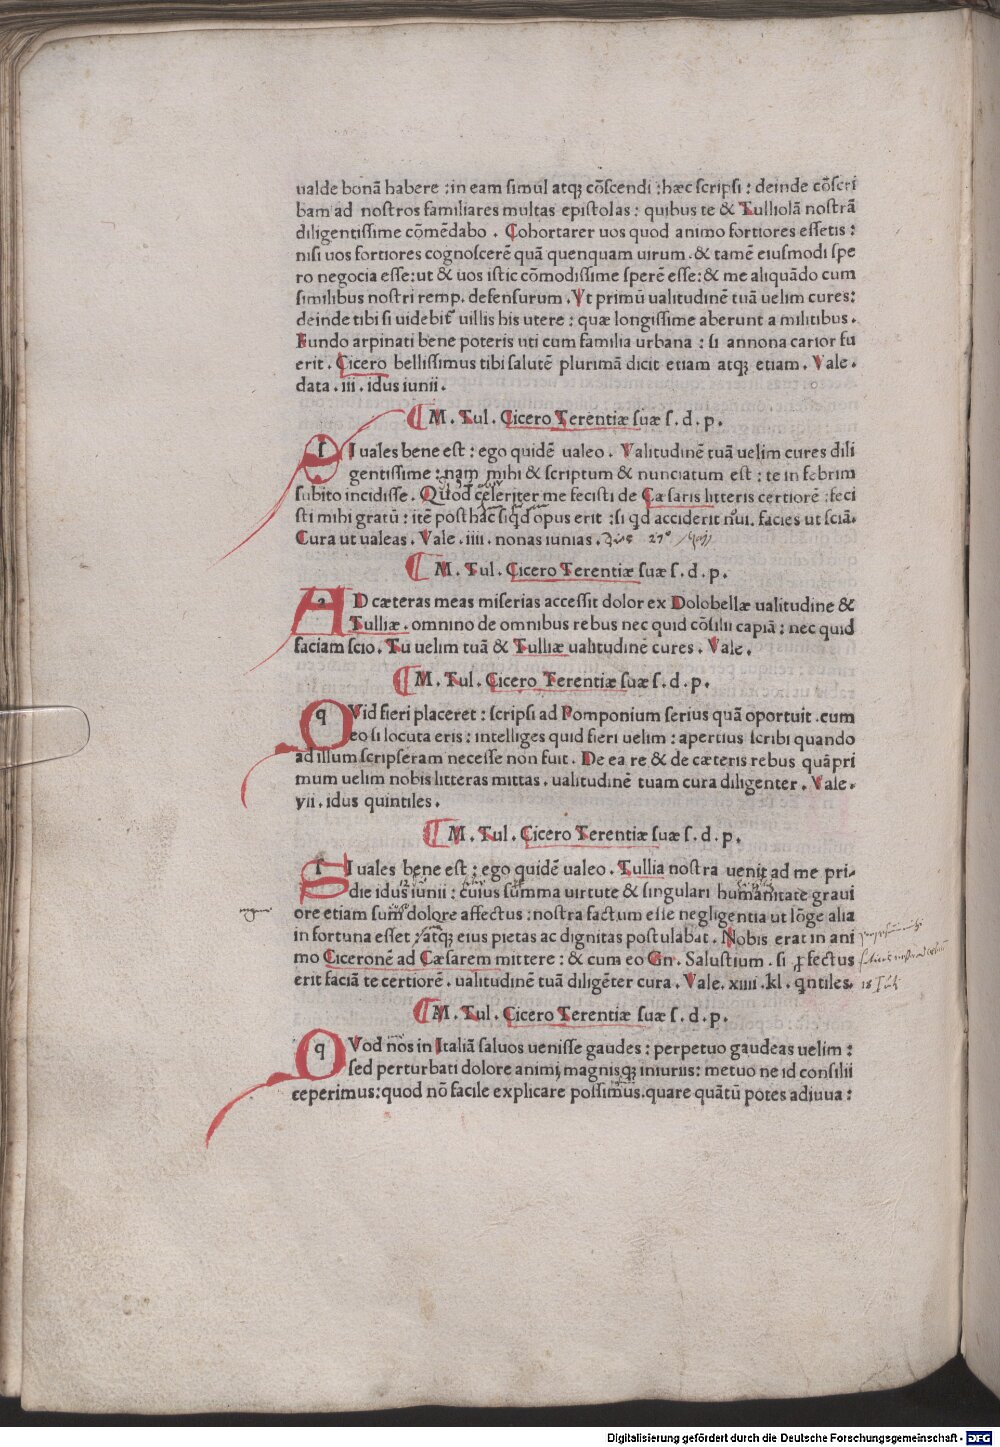 ualde bonā habere : in eam simul atqꝫ cōscendi : hæc scripsi : deinde cōscri
bam ad nostros familiares multas epistolas : quibus te & Tulliolā nostrā
diligentissime cōmēdabo . Cohortarer uos quod animo fortiores essetis :
nisi uos fortiores cognoscerē quā quenquam uirum . & tamē eiusmodi spe
ro negocia esse : ut & uos istic cōmodissime sperē esse : & me aliquādo cum
similibus nostri remp. defensurum . Vt primū ualitudinē tuā uelim cures :
deinde tibi si uidebit᷑ uillis his utere : quæ longissime aberunt a militibus .
Fundo arpinati bene poteris uti cum familia urbana : si annona carior fu
erit . Cicero bellissimus tibi salutē plurimā dicit etiam atqꝫ etiam . Vale .
data . iii . idus iunii .
M . Tul . Cicero Terentiæ suæ s . d . p .
S I uales bene est : ego quidē ualeo . Valitudinē tuā uelim cures dili
gentissime : nam mihi & scriptum & nunciatum est : te in febrim
subito incidisse . Quod celeriter me fecisti de Cæsaris litteris certiorē : feci
sti mihi gratū : itē post hac siqd opus erit : si qd acciderit nōui . facies ut sciā .
Cura ut ualeas . Vale . iiii . nonas iunias .
M . Tul . Cicero Terentiæ suæ s . d . p .
A D cæteras meas miserias accessit dolor ex Dolobellæ ualitudine &
Tulliæ . omnino de omnibus rebus nec quid cōsilii capiā : nec quid
faciam scio . Tu uelim tuā & Tulliæ ualitudinē cures . Vale .
M . Tul . Cicero Terentiæ suæ s . d . p .
Q Vid fieri placeret : scripsi ad Pomponium serius quā oportuit . cum
eo si locuta eris : intelliges quid fieri uelim : apertius scribi quando
ad illum scripseram necesse non fuit . De ea re & de cæteris rebus quāpri
mum uelim nobis litteras mittas . ualitudinē tuam cura diligenter . Vale .
vii . idus quintiles .
M . Tul . Cicero Terentiæ suæ s . d . p .
S I uales bene est : ego quidē ualeo . Tullia nostra uenit ad me pri-
die idus iunii : cuius summa uirtute & singulari humanitate graui
ore etiam sum dolore affectus : nostra factum esse negligentia ut lōge alia
in fortuna esset : atqꝫ eius pietas ac dignitas postulabat . Nobis erat in ani
mo Ciceronē ad Cæsarem mittere : & cum eo Gn . Salustium . si ꝓfectus
erit faciā te certiorē . ualitudinē tuā diligēter cura . Vale . xiiii . kl . qntiles .
M . Tul . Cicero Terentiæ suæ s . d . p .
Q Vod nos in Italiā saluos uenisse gaudes : perpetuo gaudeas uelim :
sed perturbati dolore animi , magnisqꝫ iniuriis : metuo ne id consilii
ceperimus : quod nō facile explicare possimus . quare quātū potes adiuua :
Digitalisierung gefördert durch die Deutsche Forschungsgemeinschaft - DFG